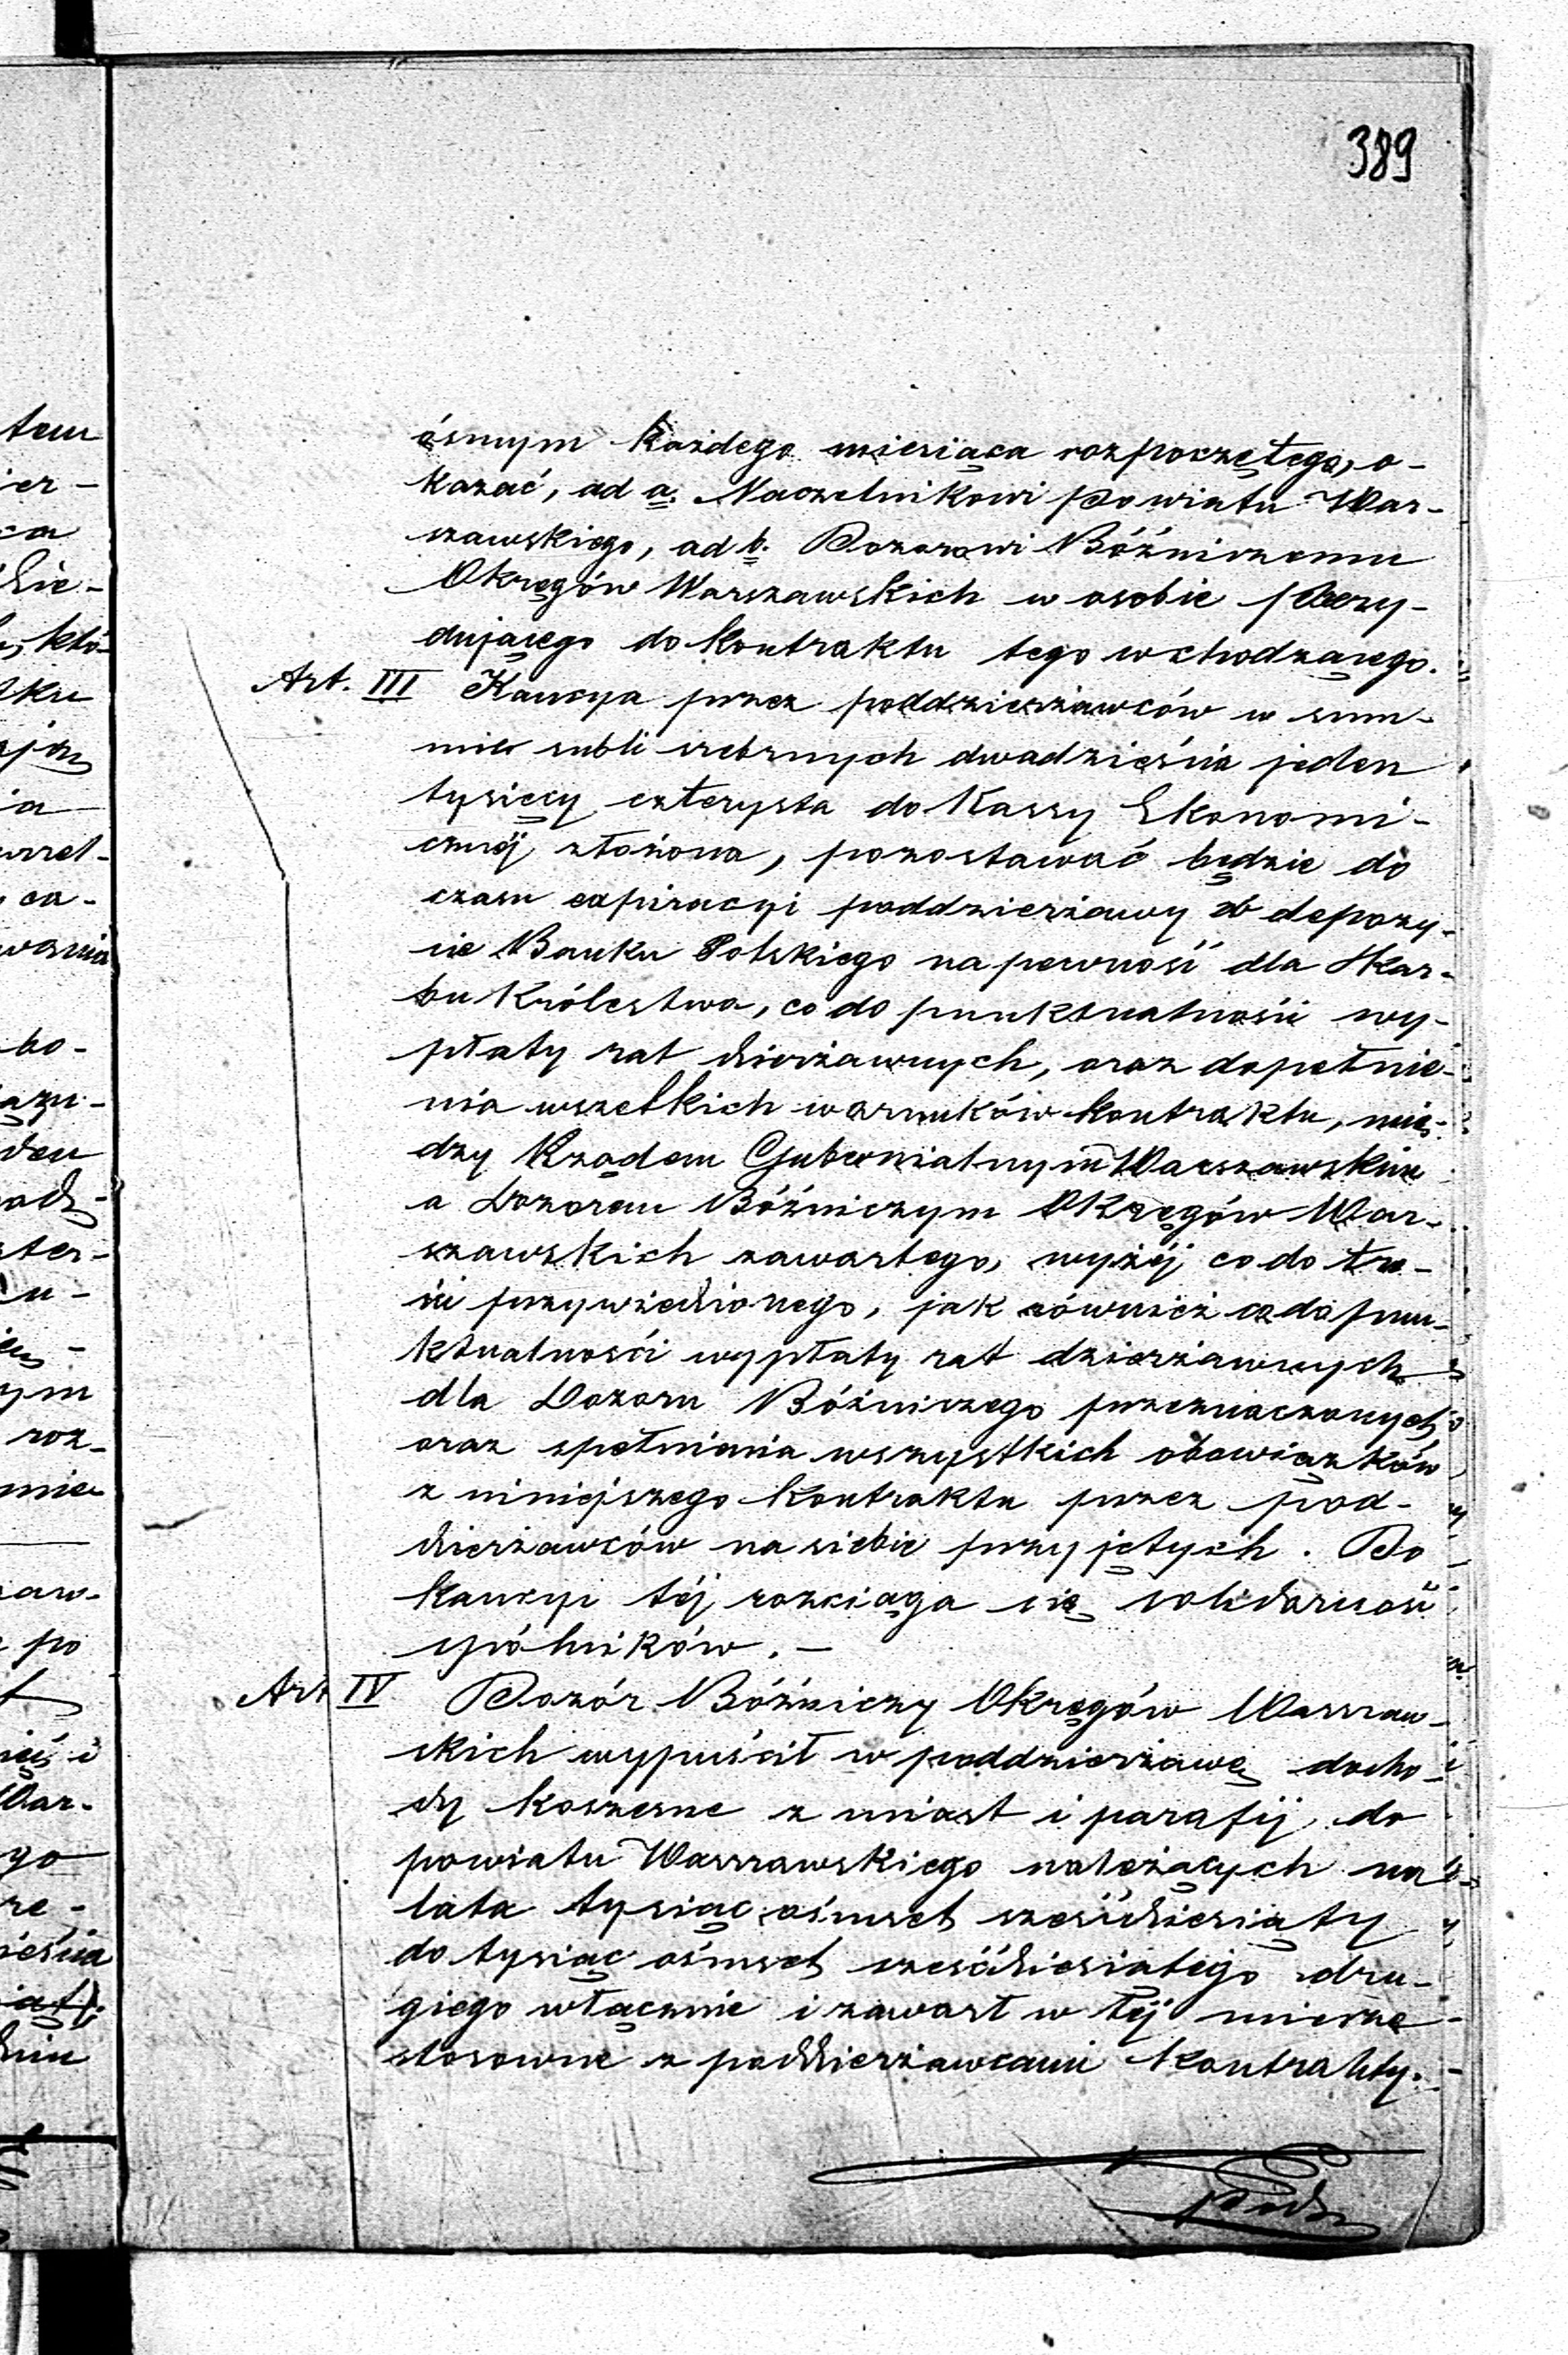 389
ósmym każdego miesiąca rozpoczętego, o-
kazać, ad a. Naczelnikowi Powiatu War-
szawskiego, ad b. Dozorowi Bóźniczemu
Okręgów Warszawskich w osobie Prezy-
dującego do kontraktu tego wchodzącego.
Art. III Kaucya przez poddzierżawców w sum-
mie rubli srebrnych dwadzieścia jeden
tysięcy czterysta do Kassy Ekonomi-
cznéj złożona, pozostawać będzie do
czasu expiracyi poddzierżawy w depozy-
cie Banku Polskiego na pewność dla Skar-
bu Królestwa, co do punktualności wy-
płaty rat dzierżawnych, oraz dopełnie-
nia wszelkich warunków kontraktu, mię-
dzy Rządem Gubernialnym Warszawskim
a Dozorem Bóźniczym Okręgów War-
szawskich zawartego, wyżéj co do tre-
ści przywiedzionego, jak również co do pun-
ktualności wypłaty rat dzierżawnych
dla Dozoru Bóźniczego przeznaczonych
oraz spełnienia wszystkich obowiązków
z niniejszego kontraktu przez pod-
dzierżawców na siebie przyjętych. Do
kaucyi téj rozciąga się solidarność
spólników. —
Art IV Dozór Bóźniczy Okręgów Warszaw-
skich wypuścił w poddzierżawę docho-
dy koszerne z miast i parafij do
powiatu Warszawskiego należących na
lata tysiąc ośmset sześćdziesiąty
do tysiąc ośmset sześćdziesiątego dru-
giego włącznie i zawarł w téj mierze
stosowne z poddzierżawcami kontrakty.